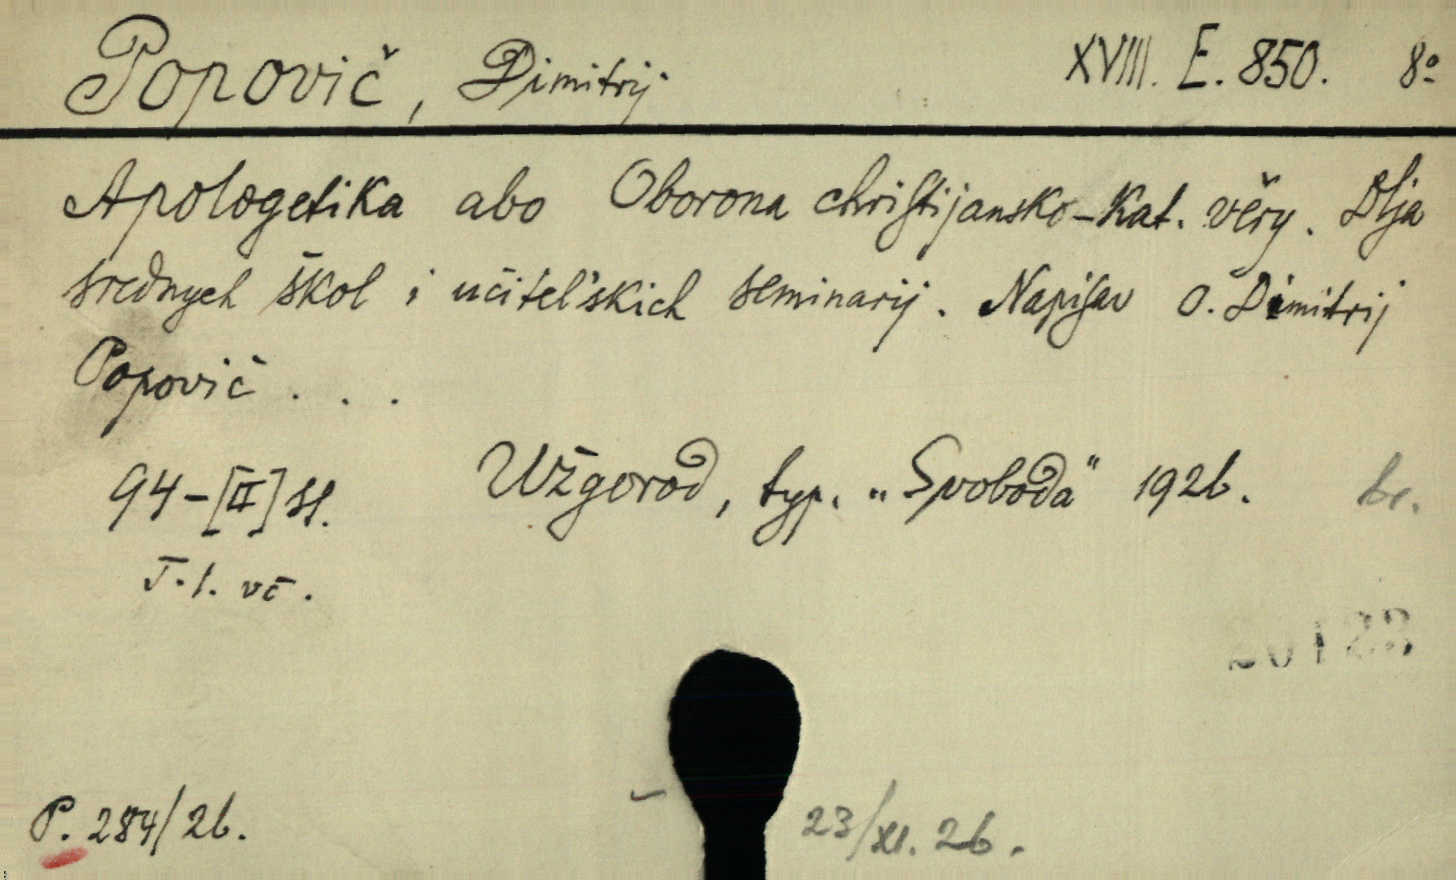 Popovič, Dimitrij XVIII. E. 850. 8º
Apologetika abo Oborona christijansko-kat. věry. Dlja
srednych škol i učitel'skich seminarij. Napisav o. Dimitrij
Popovič . . .
94-[II] st. Užgorod, typ. „Svoboda" 1926. br.
T. l. vč.
P. 284/26. 23/XI. 26.